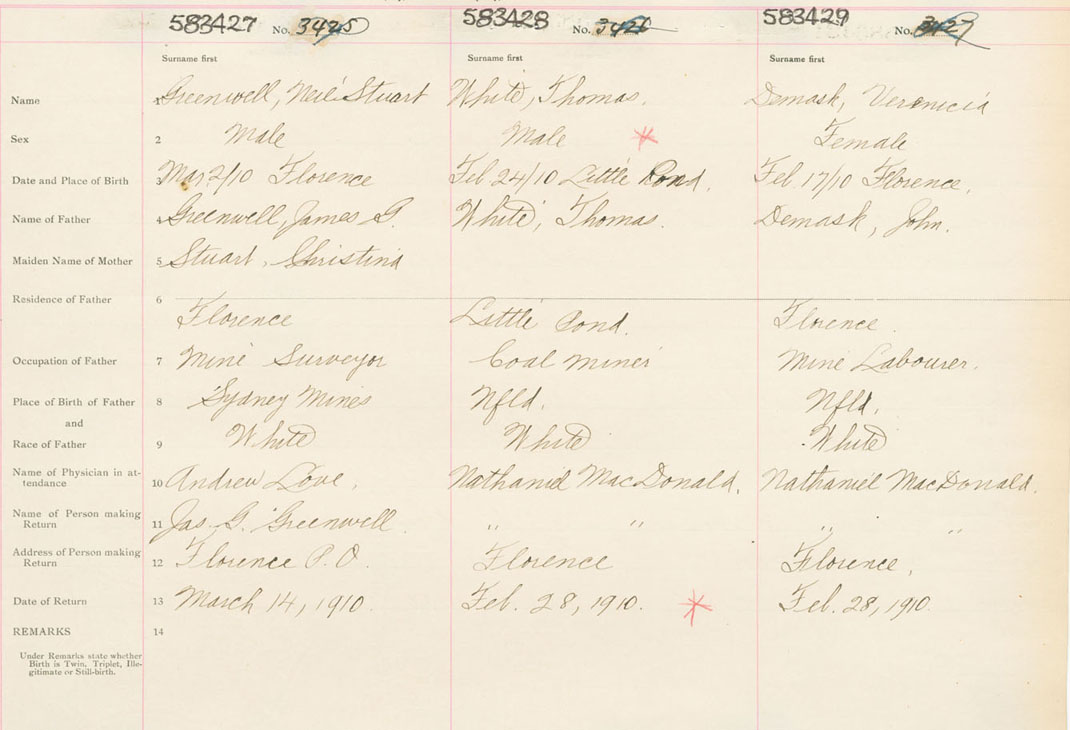 583427 No. 3425 583428 No. 3426 583429 No. 3427
Surname first Surname first Surname first
Name 1 Greenwell, Neil Stuart White, Thomas. Demask, Veronicia
Sex 2 Male Male Female
Date and Place of Birth 3 Mar 2/10 Florence Feb 24/10 Little Pond. Feb. 17/10 Florence.
Name of Father 4 Greenwell, James G. White, Thomas. Demask, John.
Maiden Name of Mother 5 Stuart, Christina
Residence of Father 6
Florence Little Pond. Florence.
Occupation of Father 7 Mine Surveyor Coal Miner Mine Labourer.
Place of Birth of Father 8 Sydney Mines Nfld. Nfld.
and
Race of Father 9 White White White
Name of Physician in at-
tendance 10 Andrew Love. Nathaniel MacDonald. Nathaniel MacDonald.
Name of Person making
Return 11 Jas. G. Greenwell " " " "
Address of Person making
Return 12 Florence P.O. Florence Florence.
Date of Return 13 March 14, 1910. Feb. 28, 1910. Feb. 28, 1910.
REMARKS 14
Under Remarks state whether
Birth is Twin, Triplet, Ille-
gitimate or Still-birth.